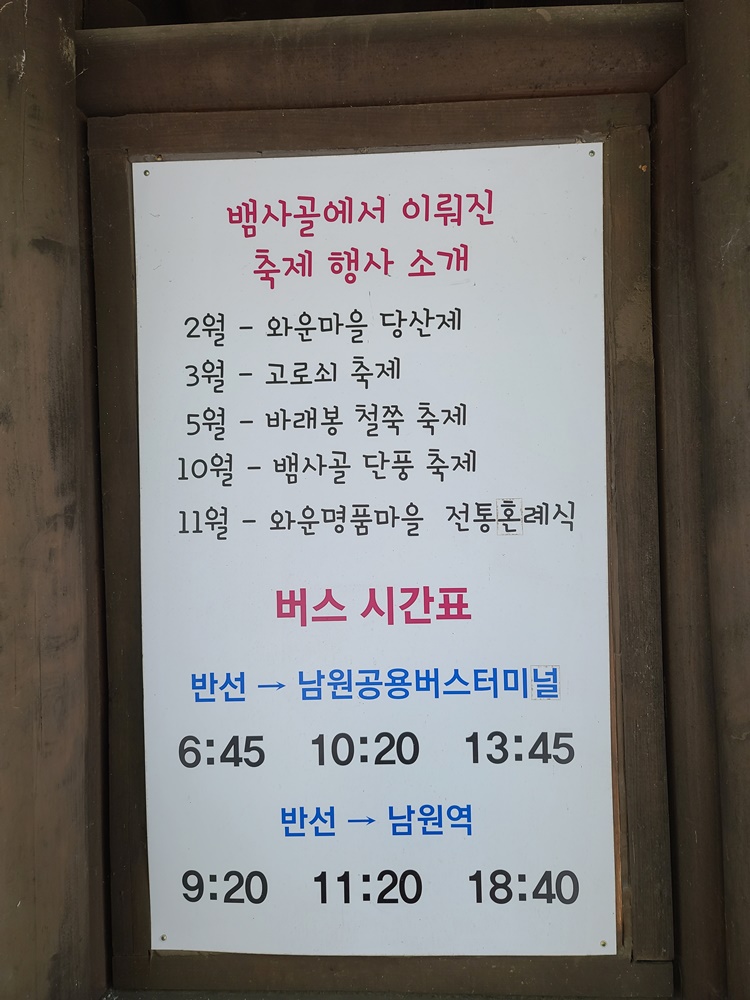 뱀사골에서 이뤄진
축제 행사 소개
2월 - 와운마을 당산제
3월 - 고로쇠 축제
5월 - 바래봉 철쭉 축제
10월 - 뱀사골 단풍 축제
11월 - 와운명품마을 전통혼례식
버스 시간표
반선 → 남원공용버스터미널
6:45 10:20 13:45
반선 → 남원역
9:20 11:20 18:40